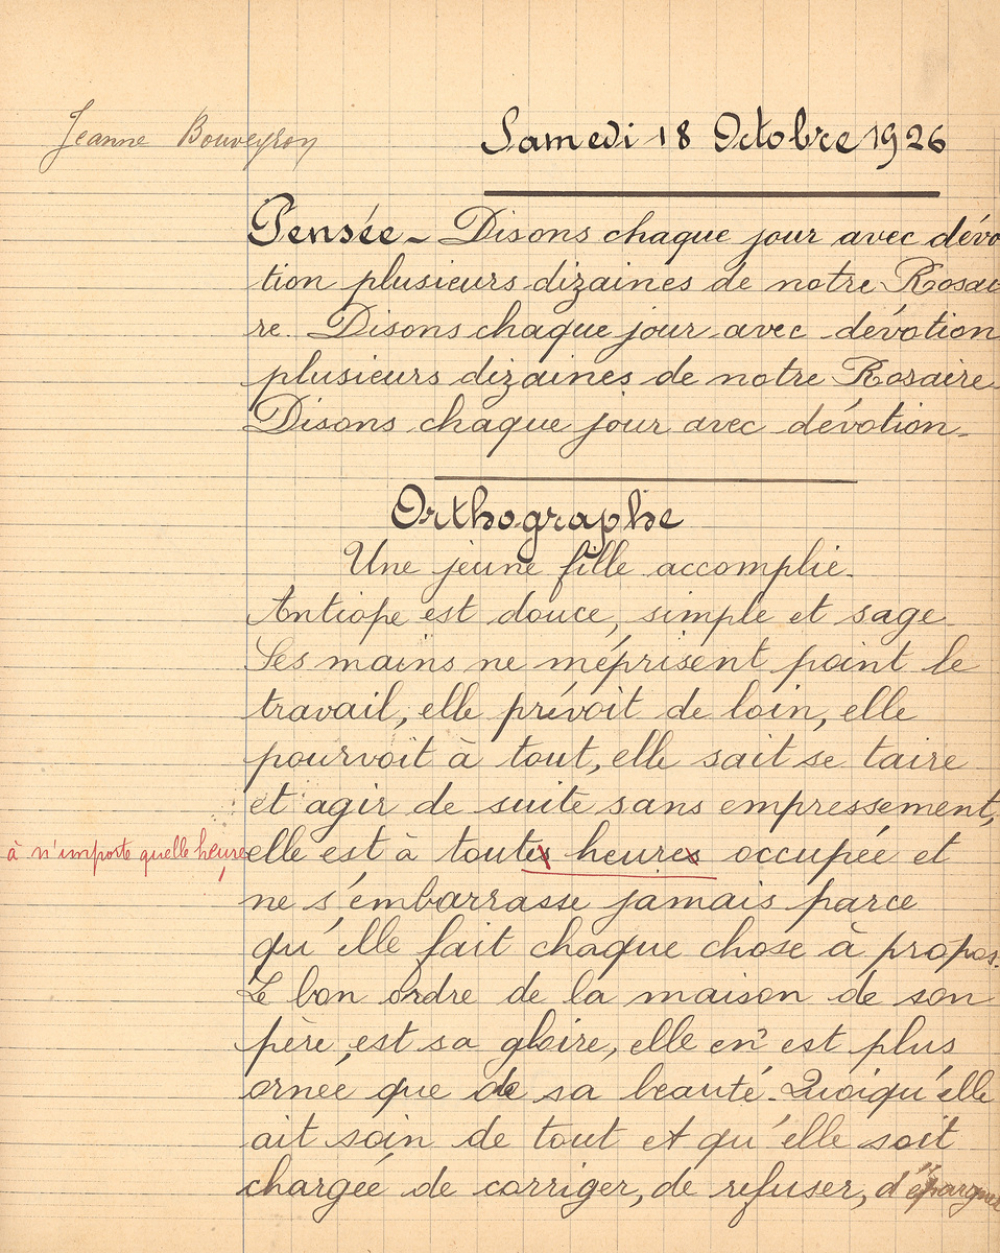 Jeanne Bouveyron
Samedi 18 Octobre 1926
Pensée - Disons chaque jour avec dévo
tion plusieurs dizaines de notre Rosai
re. Disons chaque jour avec dévotion
plusieurs dizaines de notre Rosaire.
Disons chaque jour avec dévotion.
Orthographe
Une jeune fille accomplie.
Antiope est douce, simple et sage.
Ses mains ne méprisent point le
travail, elle prévoit de loin, elle
pourvoit à tout, elle sait se taire
et agir de suite sans empressement,
à n'importe quelle heure
elle est à toutes heures occupée et
ne s'embarrasse jamais parce
qu'elle fait chaque chose à propos.
Le bon ordre de la maison de son
père, est sa gloire, elle en est plus
ornée que de sa beauté. Quoiqu'elle
ait soin de tout et qu'elle soit
chargée de corriger, de refuser, d'épargner